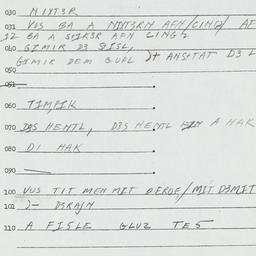 030 NIXT3R
031 VOS BA A NIXT3RN AFN/CING/ AF
12 BA A SPIK3R AFN CINGL
040 GIMIR D3 SPISL,
GIMIR DEM GUPL ANSHTAT D3 L
050
051
060 TIMPIK
070 D3S HENTL, D3S HENTL A HAK
080 DI HAK
090
100 VUS TIT MEN MIT DERDE/MIT D3MIT
101 )- D3RAJN
110 A FISLE GLUZ TE5